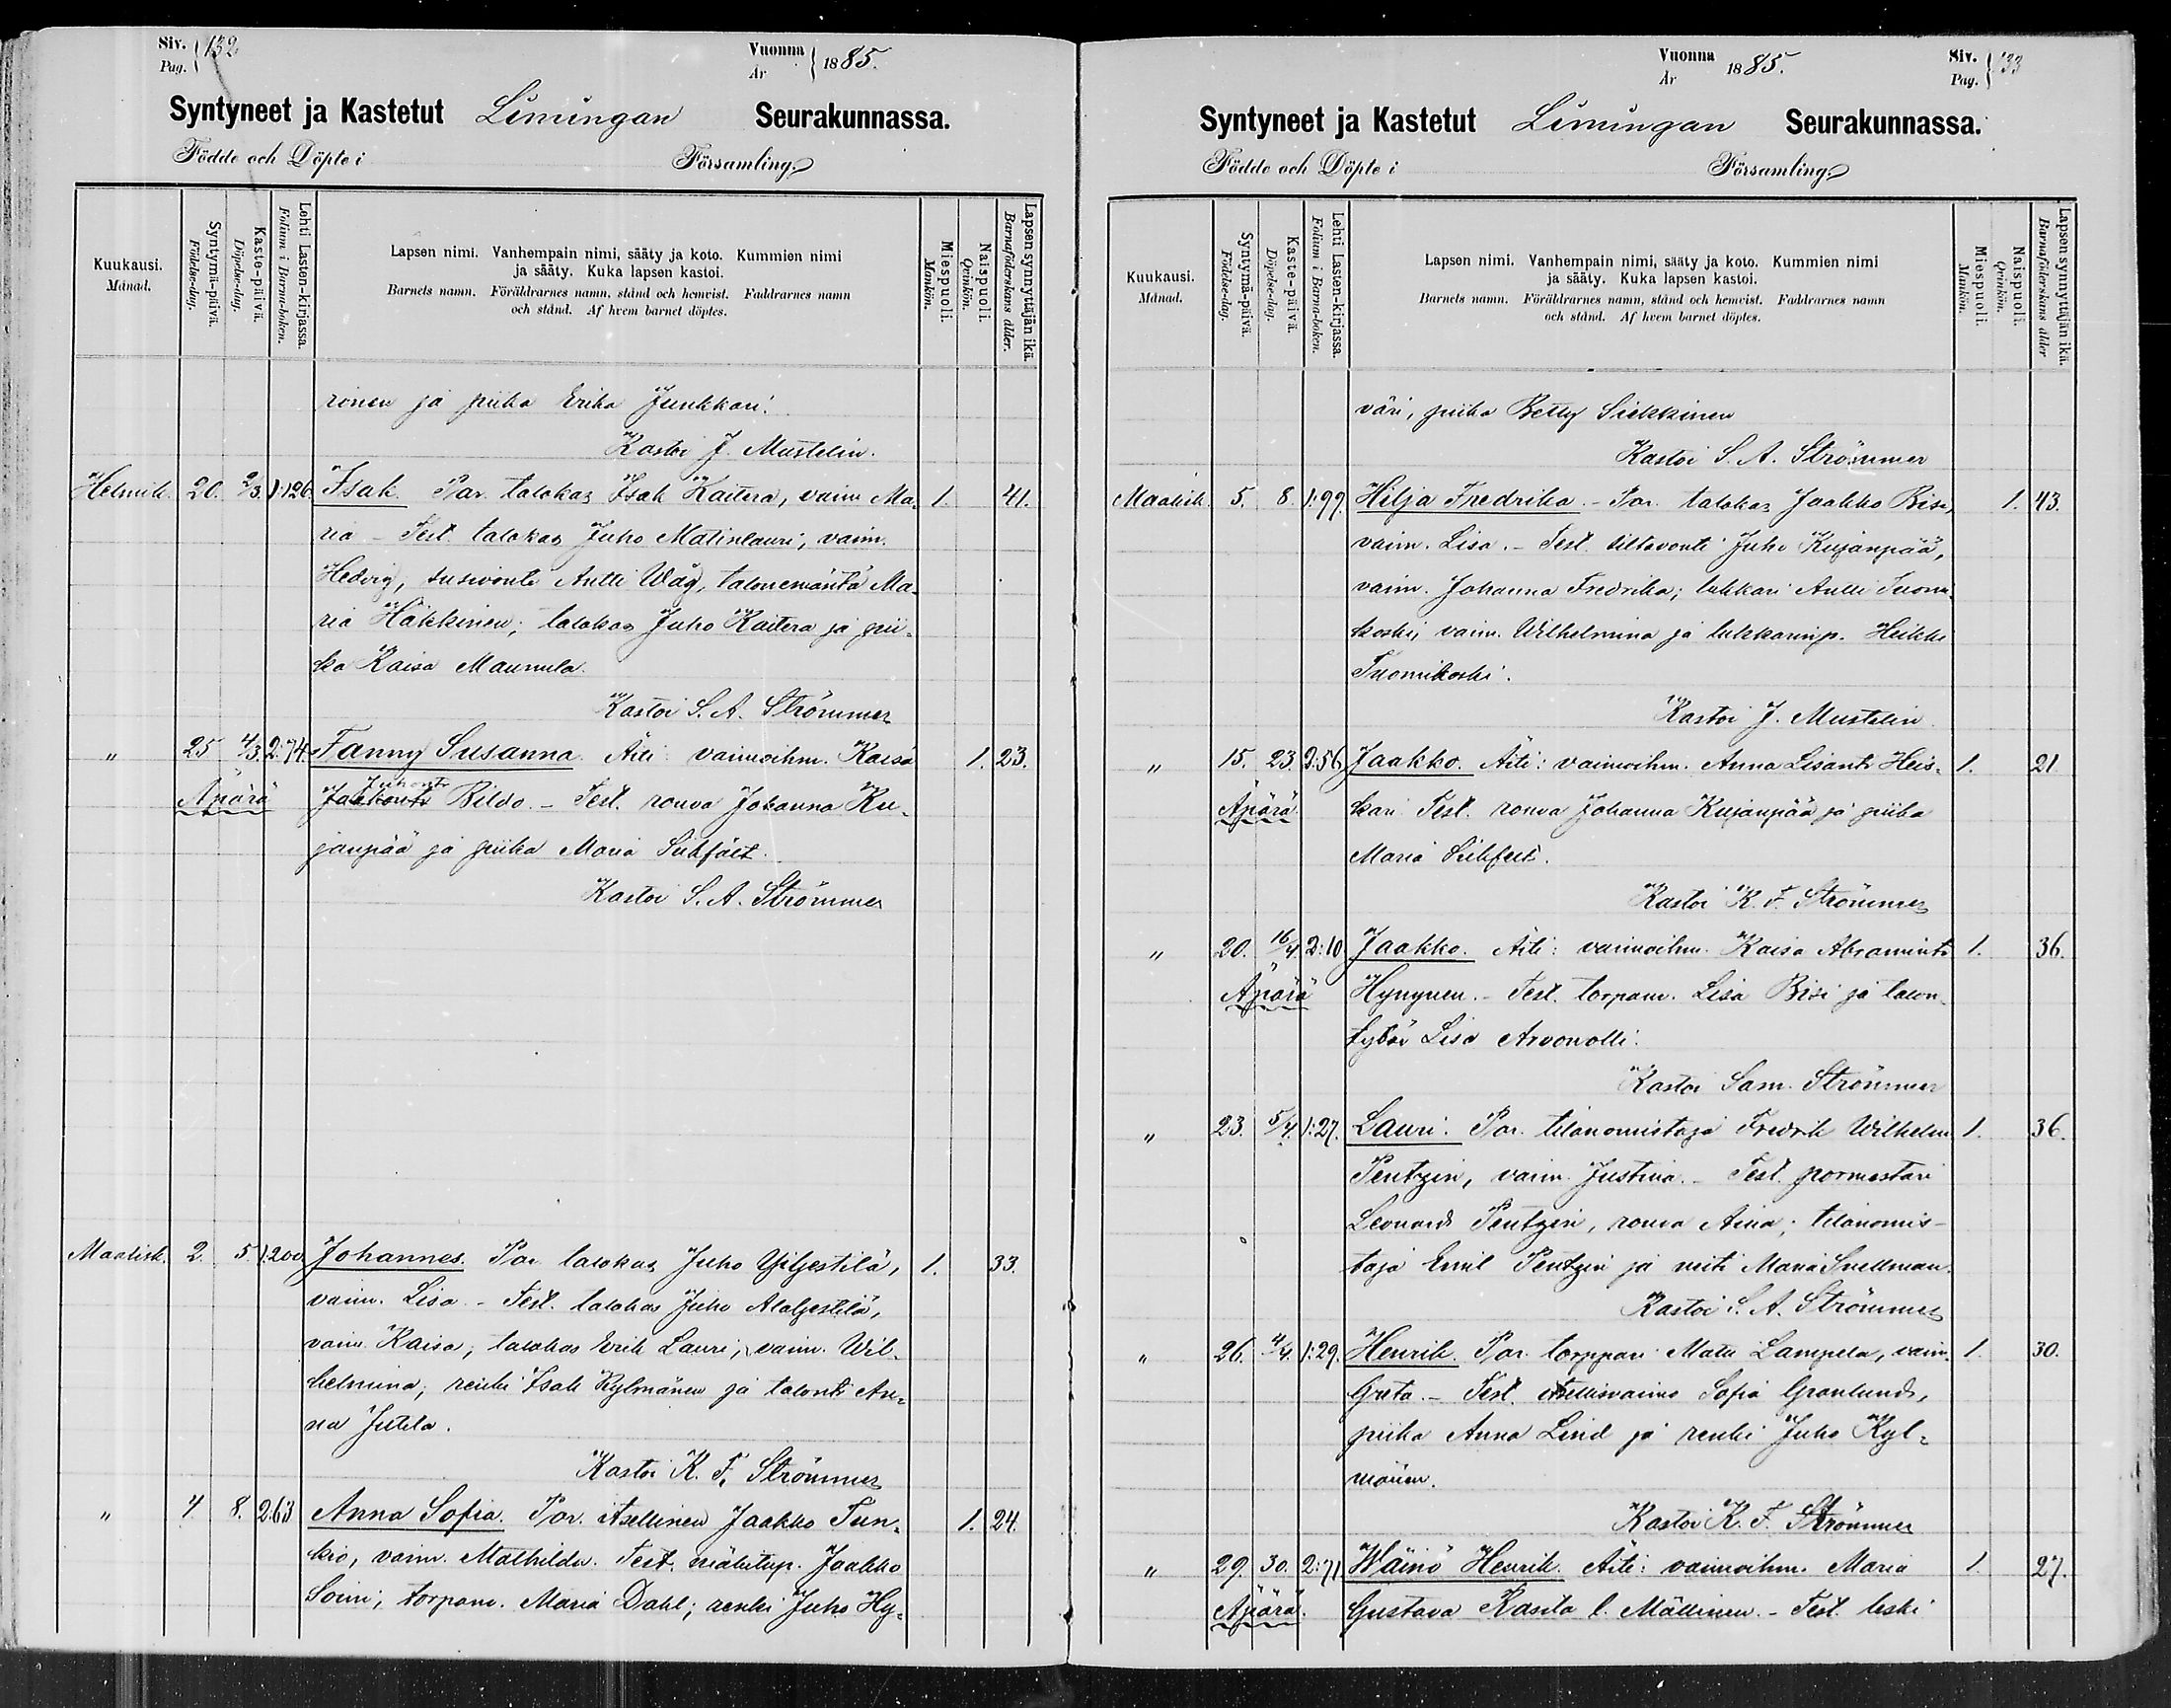 Siv. Pag. 132
Vuonna År 1885.
Syntyneet ja Kastetut Limingan Seurakunnassa.
Födde och Döpte i Församling.
Kuukausi. Månad.
Syntymä-päivä. Födelse-dag.
Kaste-päivä. Döpelse-dag.
Lehti Lasten-kirjassa. Folium i Barna-boken.
Lapsen nimi. Vanhempain nimi, sääty ja koto. Kummien nimi
ja sääty. Kuka lapsen kastoi.
Barnets namn. Föräldrarnes namn, stånd och hemvist. Faddrarnes namn
och stånd. Af hvem barnet döptes.
Miespuoli. Mankön.
Naispuoli. Qvinkön.
Lapsen synnyttäjän ikä. Barnaföderskans ålder.
ronen ja piika Erika Junkkari.
Kastoi J. Mustelin.
Helmik. 20. 2/3. 1:126. Isak. Par. talokas Isak Kaitera, vaim. Ma- 1. 41.
ria - Test. talokas Juho Matinlauri, vaim.
Hedvig, susivouti Antti Wäg, talonemäntä Ma-
ria Häkkinen; talokas Juho Kaitera ja pii-
ka Kaisa Maunula.
Kastoi S. A. Strömmer
" 25 4/3. 2:74. Fanny Susanna. Äiti: vaimoihm. Kaisa 1. 23.
Äpärä Juhont. Bildo. - Test. rouva Johanna Ku-
janpää ja piika Maria Sihfält.
Kastoi S. A. Strömmer
Maalisk. 2. 5. 1:200. Johannes. Par. talokas Juho Yliljestilä, 1. 33.
vaim. Lisa - Test. talokas Juho Alaljestilä,
vaim. Kaisa; talokas Erik Lauri, vaim. Wil-
helmina; renki Isak Kylmänen ja talont. An-
na Jutila.
Kastoi K. F. Strömmer
" 4 8. 2:63 Anna Sofia. Par. itsellinen Jaakko Tun- 1. 24.
kio, vaim. Mathilda. Test. mäkitup. Jaakko
Soini; torpanv. Maria Dahl; renki Juho Hy-
Vuonna År 1885.
Siv. Pag. 133
Syntyneet ja Kastetut Limingan Seurakunnassa.
Födde och Döpte i Församling
Kuukausi. Månad.
Syntymä-päivä. Födelse-dag.
Kaste-päivä. Döpelse-dag.
Lehti Lasten-kirjassa. Folium i Barna-boken.
Lapsen nimi. Vanhempain nimi, sääty ja koto. Kummien nimi
ja sääty. Kuka lapsen kastoi.
Barnets namn. Föräldrarnes namn, stånd och hemvist. Faddrarnes namn
och stånd. Af hvem barnet döptes.
Miespuoli. Mankön.
Naispuoli. Qvinkön.
Lapsen synnyttäjän ikä. Barnaföderskans ålder
väri, piika Betty Siekkinen
Kastoi S. A. Strömmer
Maalisk. 5. 8. 1:99. Hilja Fredrika. - Par. talokas Jaakko Bisi, 1. 43.
vaim. Lisa. - Test. siltavouti Juho Kujanpää,
vaim. Johanna Fredrika; lukkari Antti Tuomi-
koski, vaim. Wilhelmina ja lukkarinp. Heikki
Tuomikoski.
Kastoi J. Mustelin
" 15. 23. 2:56 Jaakko. Äiti: vaimoihm. Anna Lisant. Heis- 1. 21
Äpärä. kari. Test. rouva Johanna Kujanpää ja piika
Maria Sihfelt.
Kastoi K. F. Strömmer
" 20. 16/4. 2:10 Jaakko. Äiti: vaimoihm. Kaisa Abramint. 1. 36.
Äpärä Hynynen. - Test. torpanv. Lisa Bisi ja talon-
tytär Lisa Arvonolli.
Kastoi Sam. Strömmer
" 23. 5/4. 1:27. Lauri. Par. tilanomistaja Fredrik Wilhelm 1. 36.
Pentzin, vaim. Justina. - Test. pormestari
Leonard Pentzin, rouva Aina; tilanomis-
taja Emil Pentzin ja neiti Maria Snellman.
Kastoi S. A. Strömmer
" 26. 4/4. 1:29. Henrik. Par. torppari Matti Lampela, vaim. 1. 30.
Greta. - Test. itsellisvaimo Sofia Granlund,
piika Anna Lind ja renki Juho Kyl-
mänen.
Kastoi K. F. Strömmer
" 29. 30. 2:71 Wäinö Henrik. Äiti: vaimoihm. Maria 1. 27.
Äpärä. Gustava Rasila l. Mällinen. - Test. leski